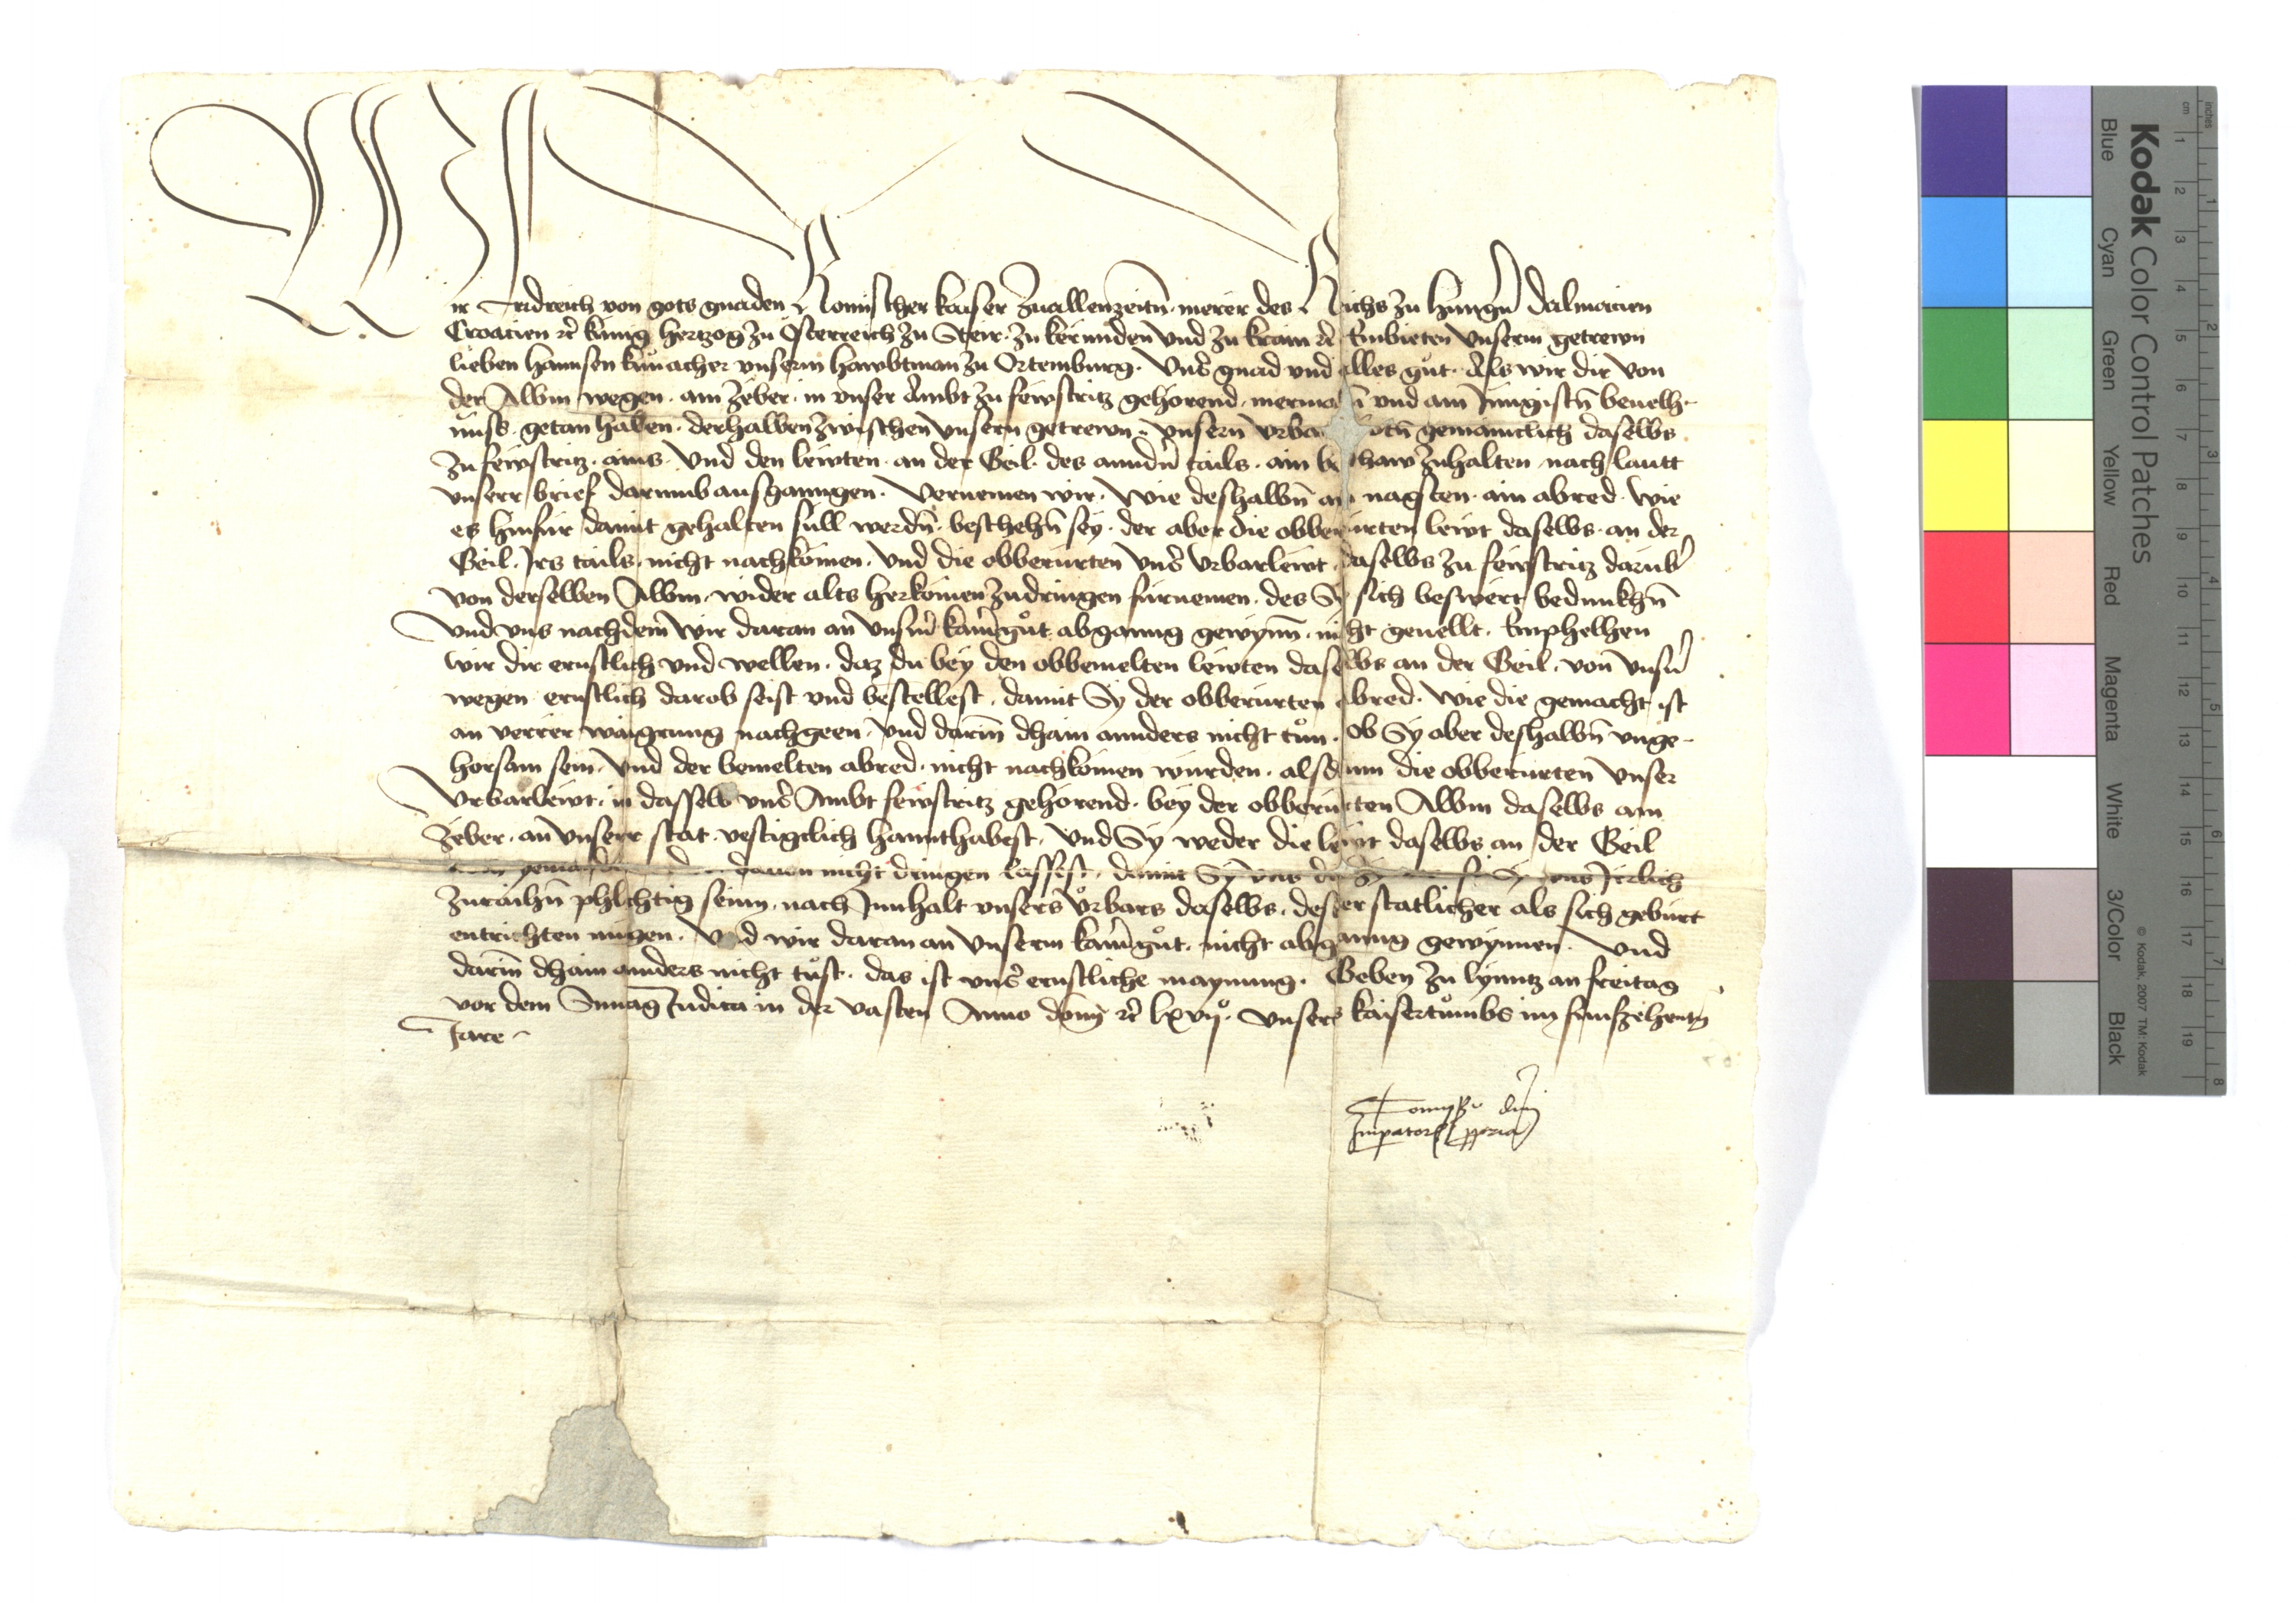 Wir Fridreich von gots gnaden Romischer kaiser zuallenzeitn̄ merer des Reichs zu Hungern̄ Dalmacien
Croacien ꝛc̄ kunig Hertzog zu Österreich zu Steir zu kernnden vnd zu krain ꝛc̄ Embieten vnserm getrewn
lieben Hannsen vnserm Hawbtman zu Ortemburg. Vns̄ gnad vnd alles gůt. Als wir dir von
der Albm wegen am Zeber in vnser Ambt zu fewstritz gehörend mermaln̄ vnd am Jungistn̄ beuelh-
nuss getan haben. derhalben zwischen vnsern getrewn .. vnsern vrba gemaincklich daselbs
zu fewstritz ains vnd den lewten an der Geil des anndn̄ tails ain beschaw zuhalten nach lautt
vnserr brief darumb ausganngen. Vernemen wir wie deshalbn̄ am nagsten ain abred wie
es hinfür damit gehalten süll werdn̄ beschehn̄ sey der aber die obberürten lewt daselbs an der
Geil Irs tails nicht nachkömen vnd die obberürten vns̄ vrbarlewt daselbs zu fewstritz darüb̄
von derselben Albm wider alts herkömen zudringen fürnemen des Sy sich beswert bedunkhn̄
vnd vns nachdem wir daran an vnserm̄ kam̄ergůt abganng gewynn̄ nicht geuellt. Emphelhen
wir dir ernstlich vnd wellen daz du bey den obbemelten lewten daselbs an der Geil von vnsn̄
wegen ernstlich darob seist vnd bestellest damit Sy der obberürten abred wie die gemacht ist
an verrer waigrung nachgeen vnd darin̄ dhain annders nicht tůn. Ob Sy aber deshalbn̄ vnge-
horsam sein vnd der bemelten abred nicht nachkömen würden alsdann die obberürten vnser
vrbarlewt in dasselb vns̄ Ambt fewstritz gehörend bey der obberürten Albm daselbs am
Zeber an vnserr stat vestigclich hannthabest vnd Sy weder die lewt daselbs an der Geil
noch yemands dauon nicht dringen lassest damit Sy vns Sy vns Jerlich
zuraihn̄ phlichtig seinn nach Innhalt vnsers vrbars daselbs dester statlicher als sich gebürt
entrichten mugen. Vnd wir daran an vnserm kam̄ergůt nicht abganng gewynnen. Vnd
darin̄ dhain annders nicht tůst. das ist vns̄ ernstliche maynung. Geben zu Lynntz an freitag
vor dem Sunntag Judica in der vasten Anno dom̄ ꝛc̄ lxvijͦ. Vnsers kaisertůmbs im fünfzehentn
Jare
Com̄issio dn̄i
Imperatoris ppria
Kodak Color Control Patches
Blue Cyan Green Yellow Red Magenta White 3/Color Black
© Kodak, 2007 TM: Kodak
cm 1 2 3 4 5 6 7 8 9 10 11 12 13 14 15 16 17 18 19
inches 1 2 3 4 5 6 7 8